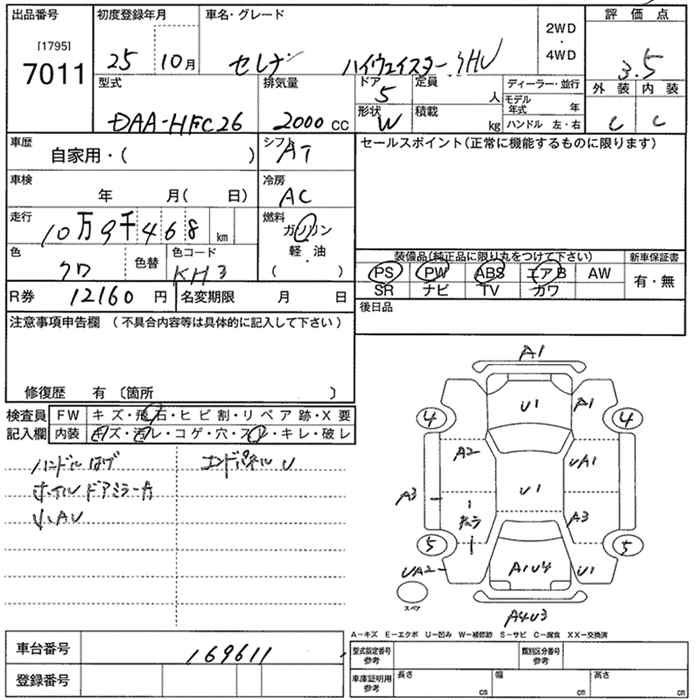 出品番号 初度登録年月 車名・グレード 2WD・4WD 評価点
[1795]
7011 25 10月 セレナ ハイウェイスターSHV 3.5
型式 排気量 ドア 定員 ディーラー・並行 外装 内装
5 人 モデル年式 年
DAA-HFC26 2000cc 形状 W 積載 kg ハンドル 左・右 C C
車歴 自家用・( ) シフト AT セールスポイント(正常に機能するものに限ります)
車検 年 月( 日) 冷房 AC
走行 10万9千468km 燃料 ガソリン・軽油
( )
色 クロ 色替 色コード KH3 装備品(純正品に限り丸をつけて下さい) 新車保証書
PS PW ABS エアB AW 有・無
R券 12160円 名変期限 月 日 SR ナビ TV カワ
後日品
注意事項申告欄 (不具合内容等は具体的に記入して下さい)
修復歴 有 〔箇所 〕
検査員 FW キズ・飛石・ヒビ割・リペア跡・X要
記入欄 内装 キズ・汚レ・コゲ・穴・スレ・キレ・破レ
ハンドルはげ エンドパネルU
ホイル ドアミラーA
小AU
A1
U1 A1
4 4
A2 UA1
A3 U1
A3
5 5
UA2 A1U4 U1
スペア
A4U3
A−キズ E−エクボ U−凹み W−補修跡 S−サビ C−腐食 XX−交換済
車台番号 169611 型式指定番号 参考 類別区分番号 参考
登録番号 車庫証明用 参考 長さ cm 幅 cm 高さ cm